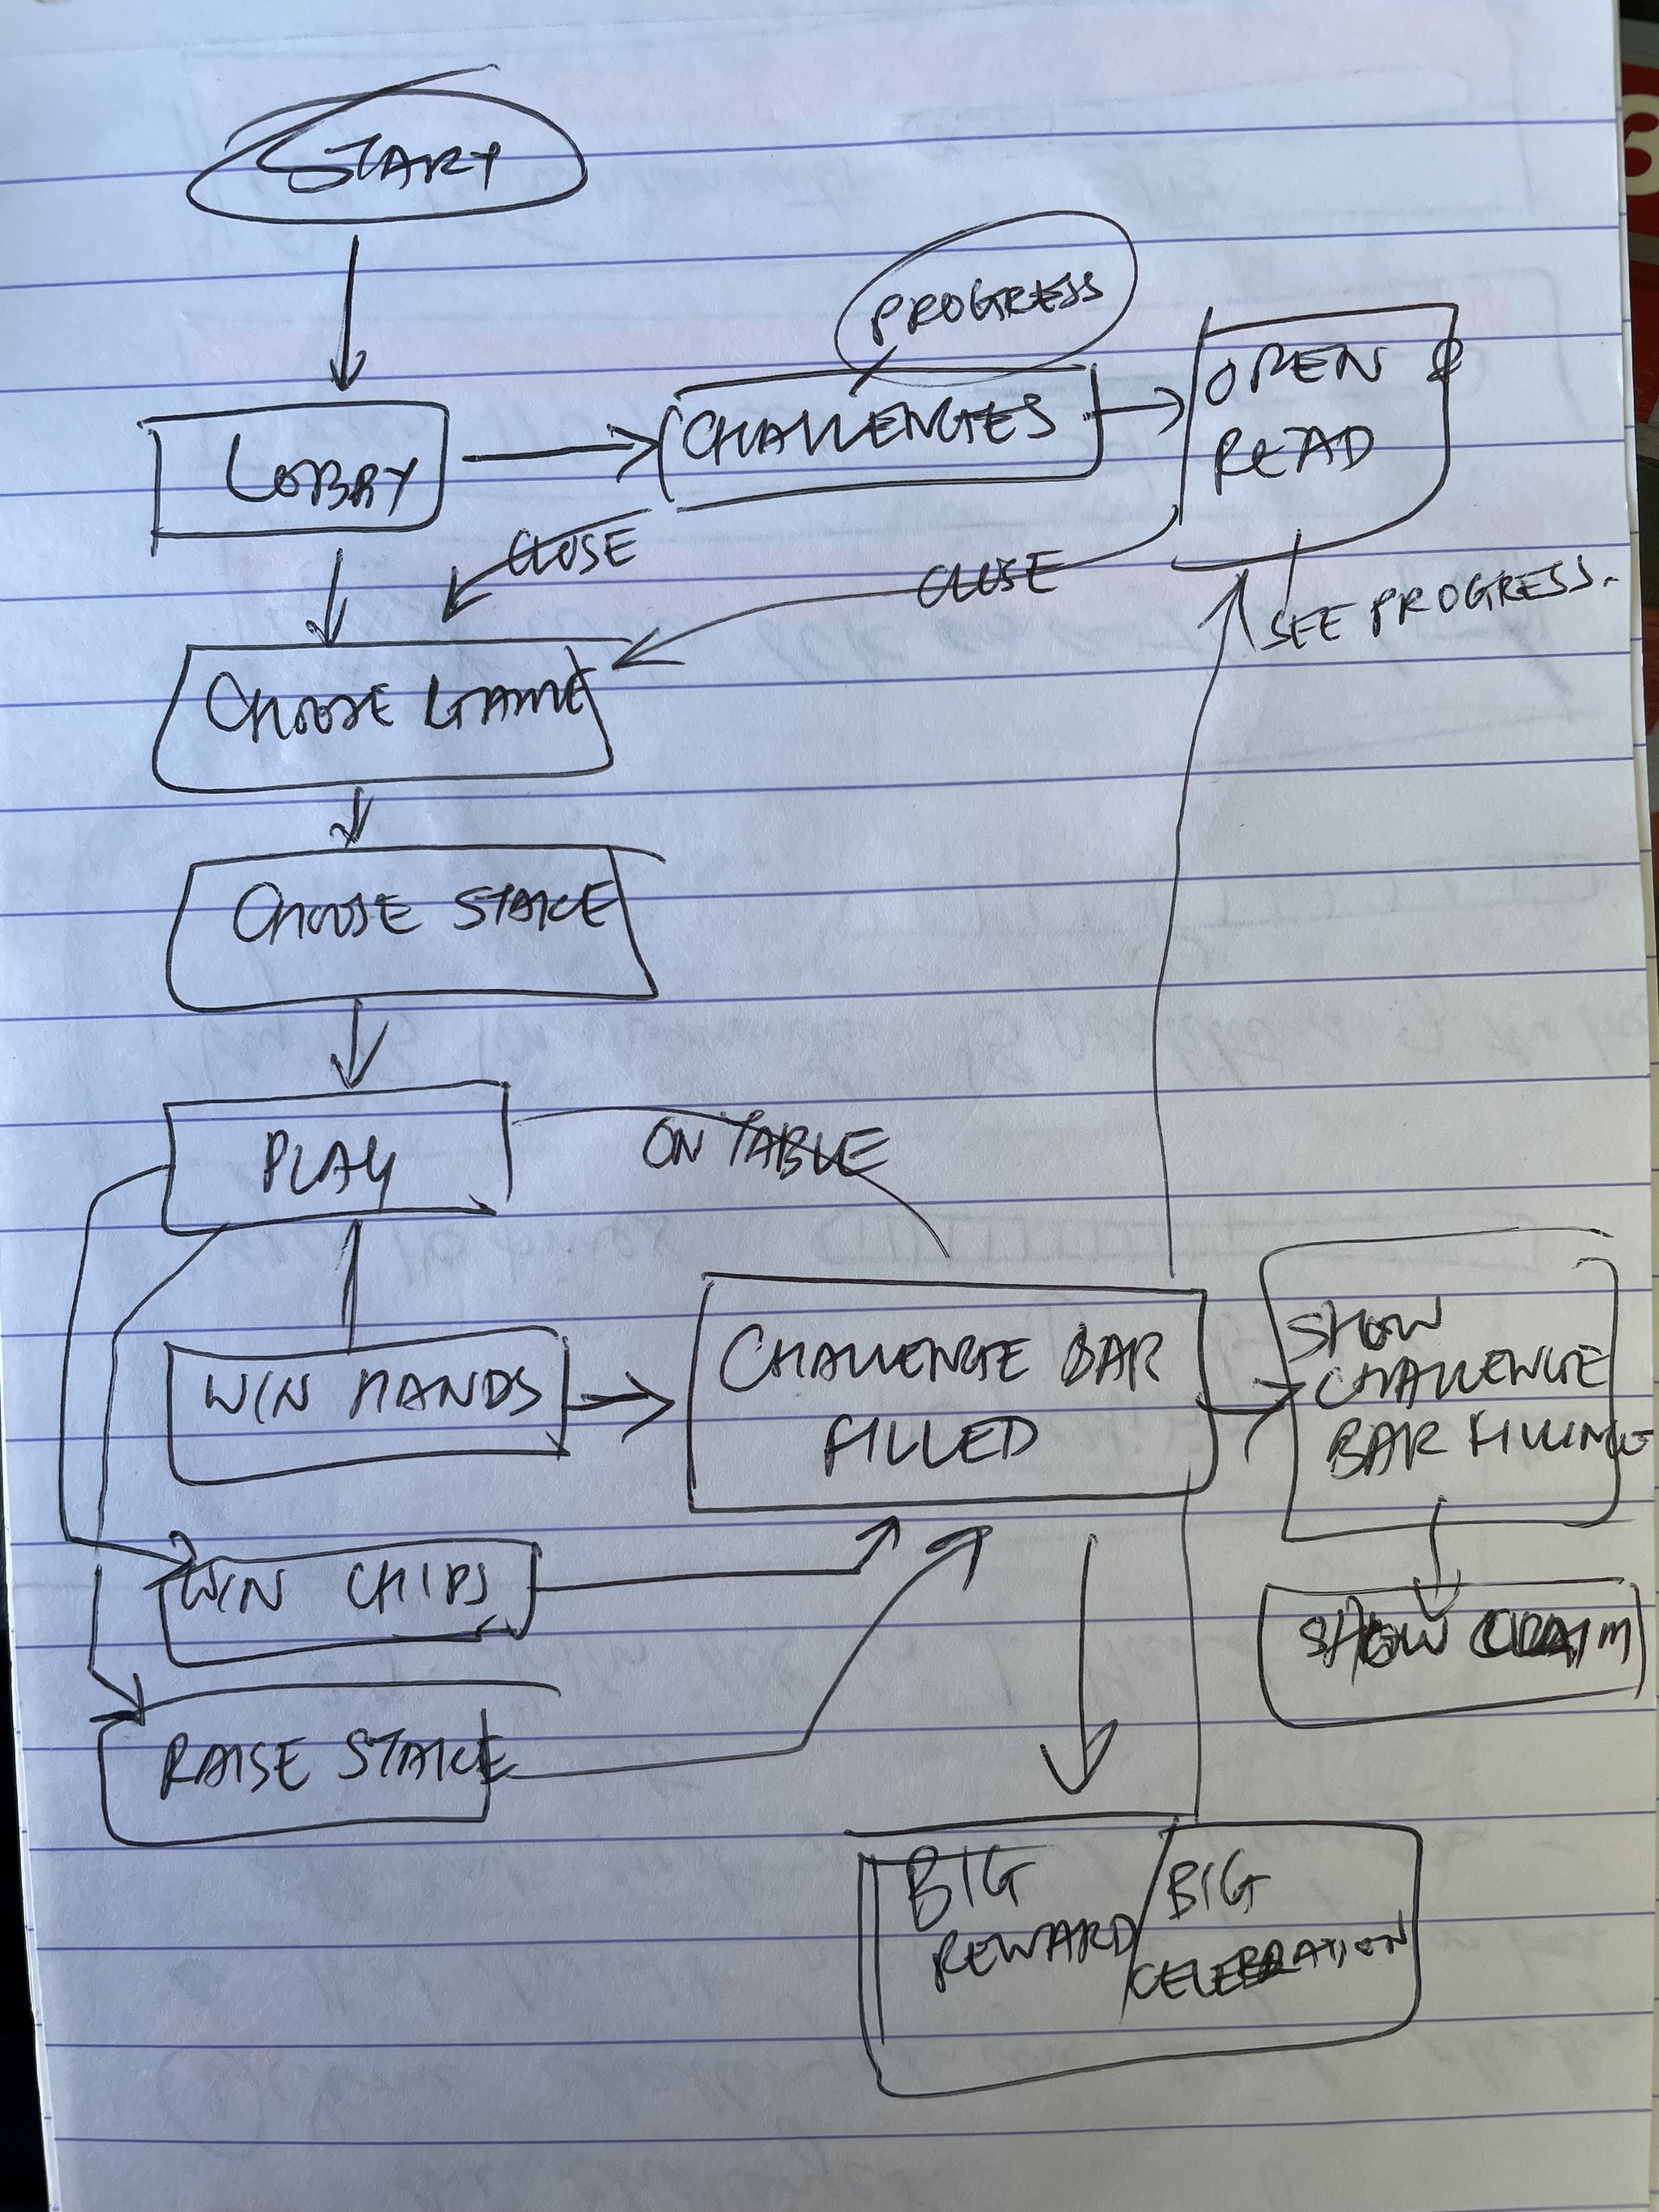 START
PROGRESS
LOBBY
CHALLENGES
OPEN &
READ
CLOSE
CLOSE
SEE PROGRESS.
CHOOSE GAME
CHOOSE STAKE
PLAY
ON TABLE
WIN HANDS
CHALLENGE BAR
FILLED
SHOW
CHALLENGE
BAR FILLING
WIN CHIPS
SHOW CLAIM
RAISE STAKE
BIG
REWARD/
BIG
CELEBRATION